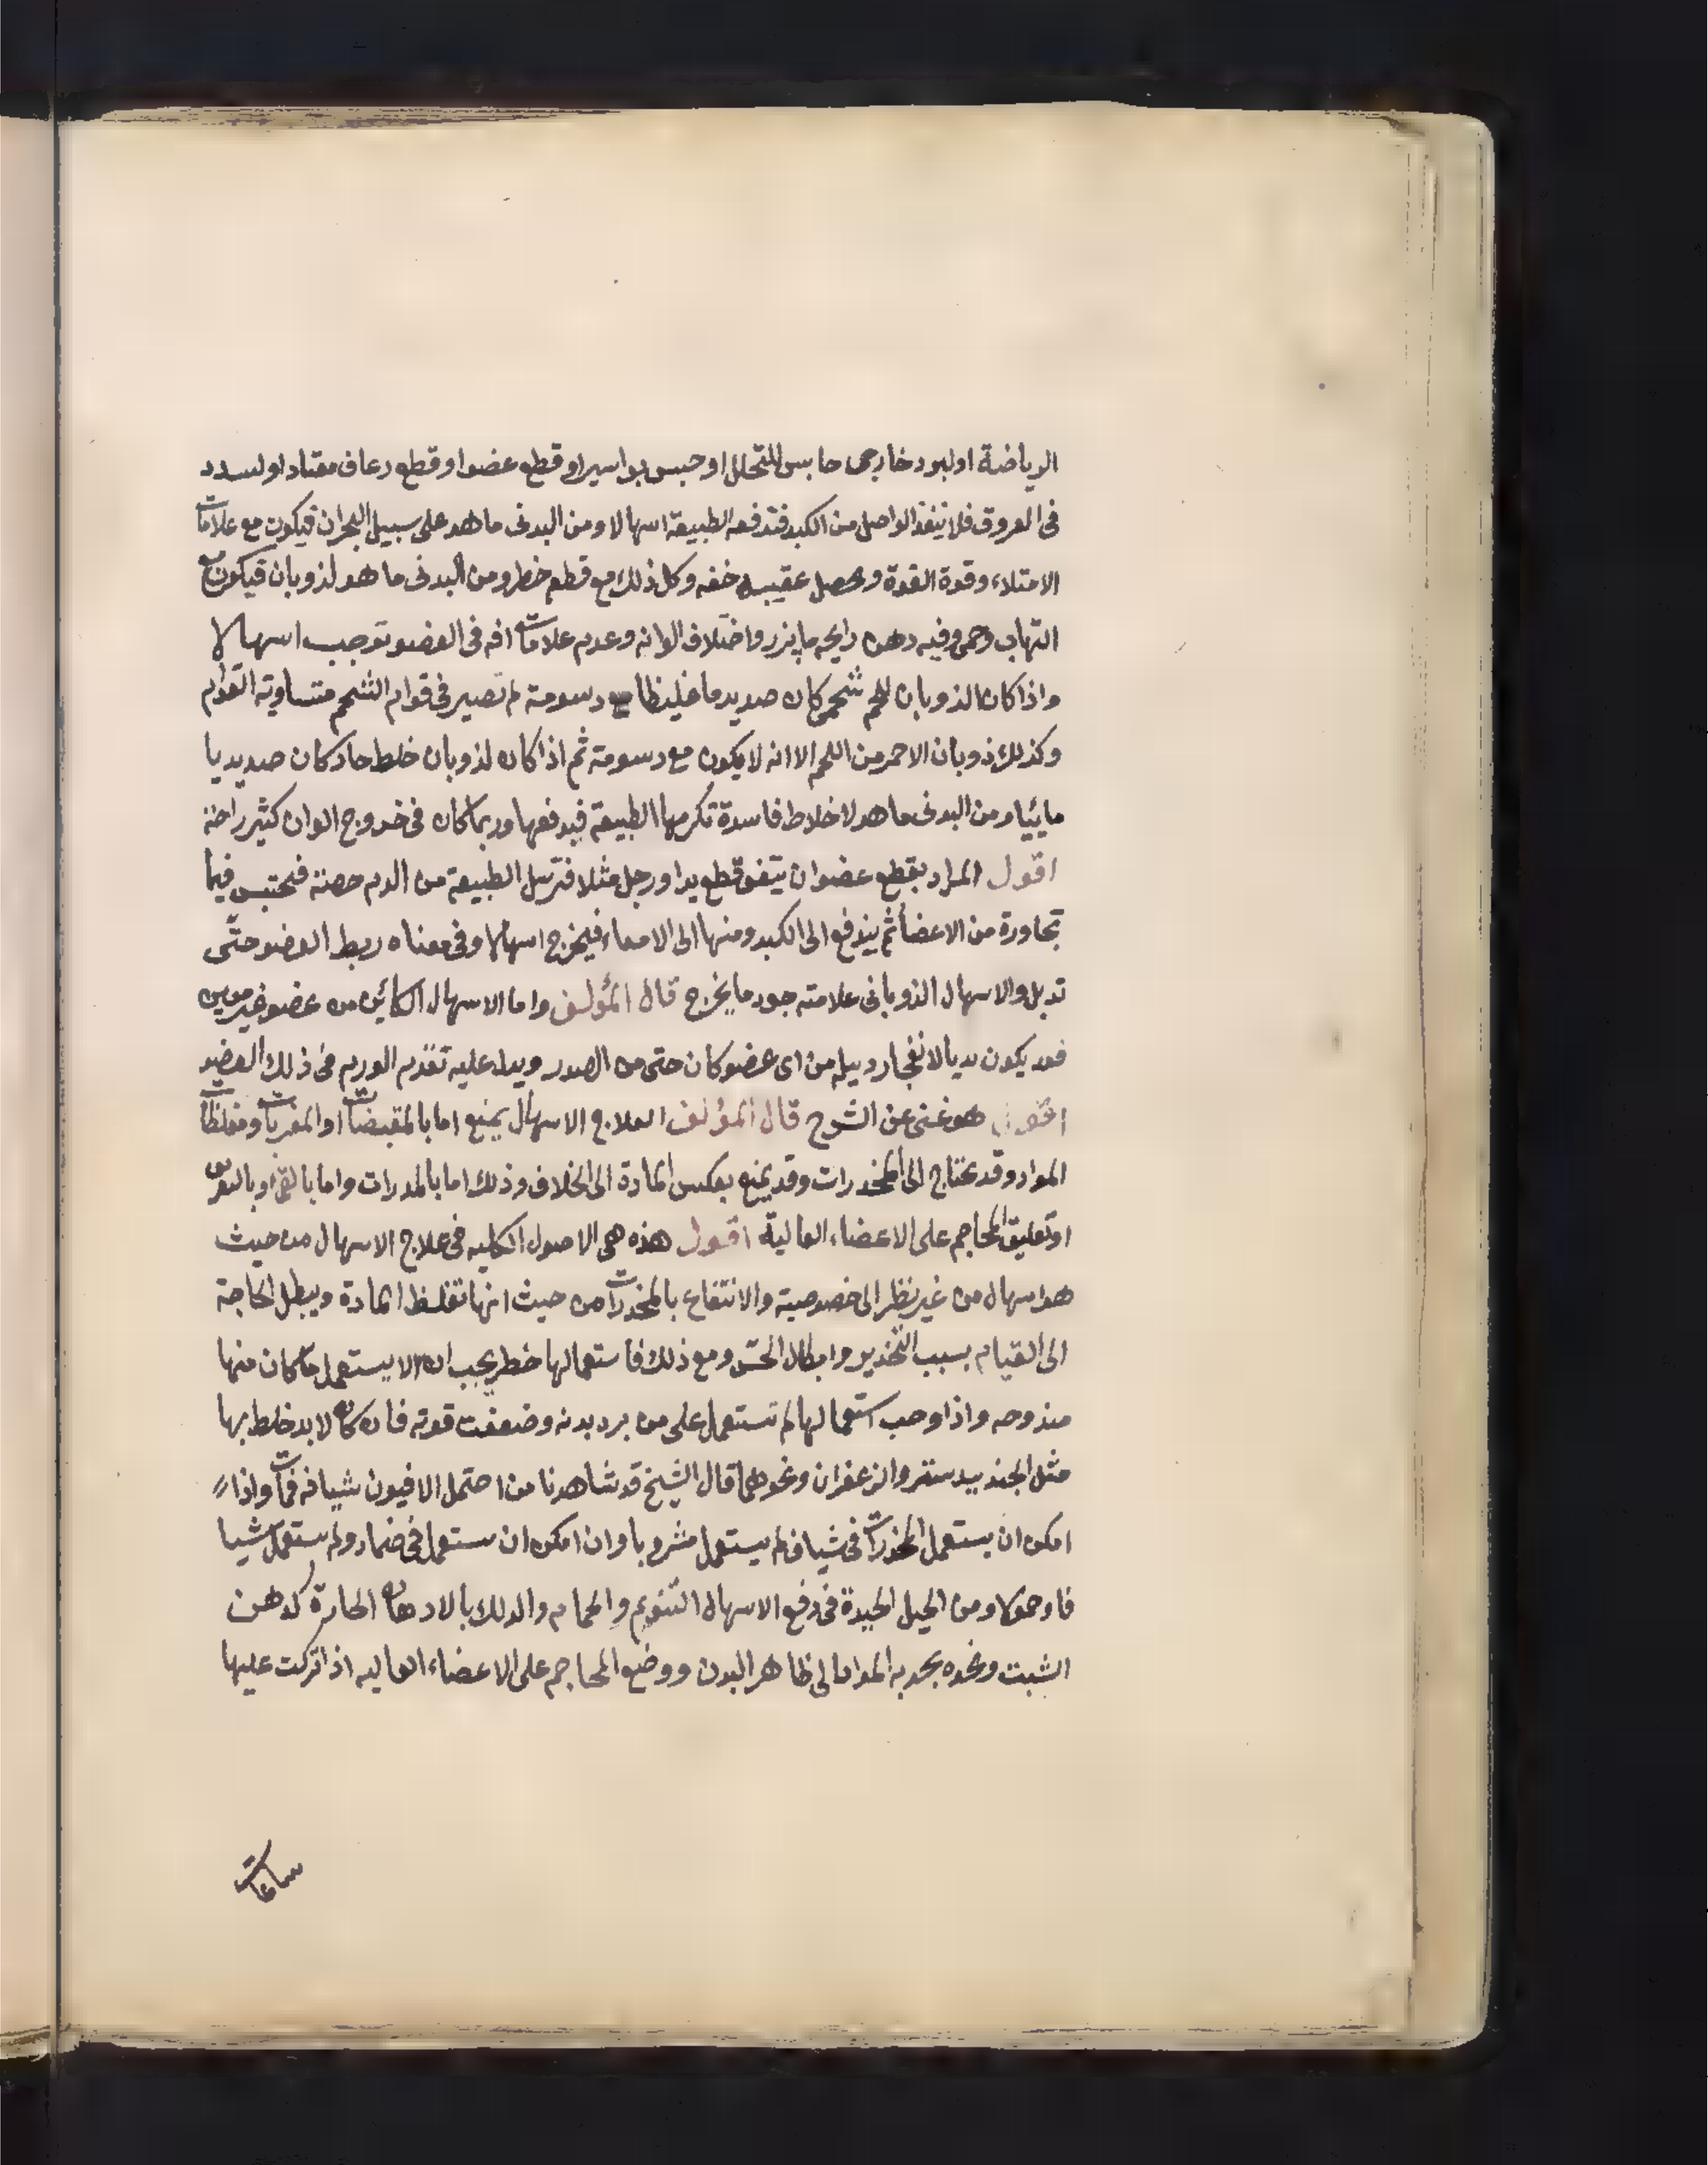 الرياضة او لبرد خارجى حابس للتحلل او حبس بواسير او قطع عضو او قطع رعاف معتاد او لسدد
فى العروق فلا ينفذ الواصل من الكبد فتدفعه الطبيعة اسهالا ومن البدنى ما هو على سبيل البحران فيكون مع علامات
الامتلاء وقوة القوة ويحصل عقيبه خفه وكل ذلك مع قطعه خطر ومن البدنى ما هو لذوبان فيكون مع
التهاب وحمى وفيه دهن رايحه ما يبرز واختلاف الوانه وعدم علامات افه فى العضو توجب اسهالا
واذا كان الذوبان للحم شحمى كان صديد ما غليظا مع دسومة لم تصير فى قوام الشحم متساوية القوام
وكذلك ذوبان الاحمر من اللحم الا انه لا يكون مع دسومة ثم اذا كان لذوبان خلط حار كان صديديا
مائيا ومن البدنى ما هو لاخلاط فاسدة تكرهها الطبيعة فيدفعها وربما كان فى خروج الوان كثير راحة
اقول المراد بقطع عضو ان يتفق قطع يد او رجل مثلا فترسل الطبيعة من الدم حصته فيحتبس فيما
تجاورة من الاعضا ثم يندفع الى الكبد ومنها الى الامعاء فيخرج اسهالا وفى معناه ربط العضو حتى
تذبل والاسهال الذوبانى علامته جود ما يخرج قال المؤلف واما الاسهال الكائن من عضو غير معين
فقد يكون مديا لانفجار دبيله من اى عضو كان حتى من الصدر ويدل عليه تقدم الورم فى ذلك العضو
اقول هو غنى عن الشرح قال المؤلف العلاج الاسهال يمنع اما بالمقبضات او المغريات ومغلظات
المواد وقد يحتاج الى المخدرات وقد يمنع بعكس المادة الى الخلاف وذلك اما بالمدرات واما بالقئ او بالتعريق
او تعليق المحاجم على الاعضاء العالية اقول هذه هى الاصول الكليه فى علاج الاسهال من حيث
هو اسهال من غير نظر الى خصوصيته والانتفاع بالمخدرات من حيث انها تغلظ المادة ويبطل الحاجة
الى القيام بسبب التخدير وابطال الحس ومع ذلك فاستعمالها خطر يجب ان لا يستعمل ما كان منها
مندوحه واذا وجب استعمالها لم تستعمل على من برد بدنه وضعفت قوته فان كان لا بد خلط بها
مثل الجندبيدستر والزعفران ونحوهما قال الشيخ قد شاهدنا من احتمل الافيون شيافه فمات واذا
امكن ان يستعمل المخدرات فى شياف لم يستعمل مشروبا وان امكن ان ستعمل فى ضماد ولم ستعمل شيا
فا ومن الحيل الجيدة فى دفع الاسهال التنويم والحمام والدلك بالادهان الحارة كدهن
الشبت ونحوه بجذبه المواد الى ظاهر البدن ووضع المحاجم على الاعضاء العاليه اذا تركت عليها
ساعات